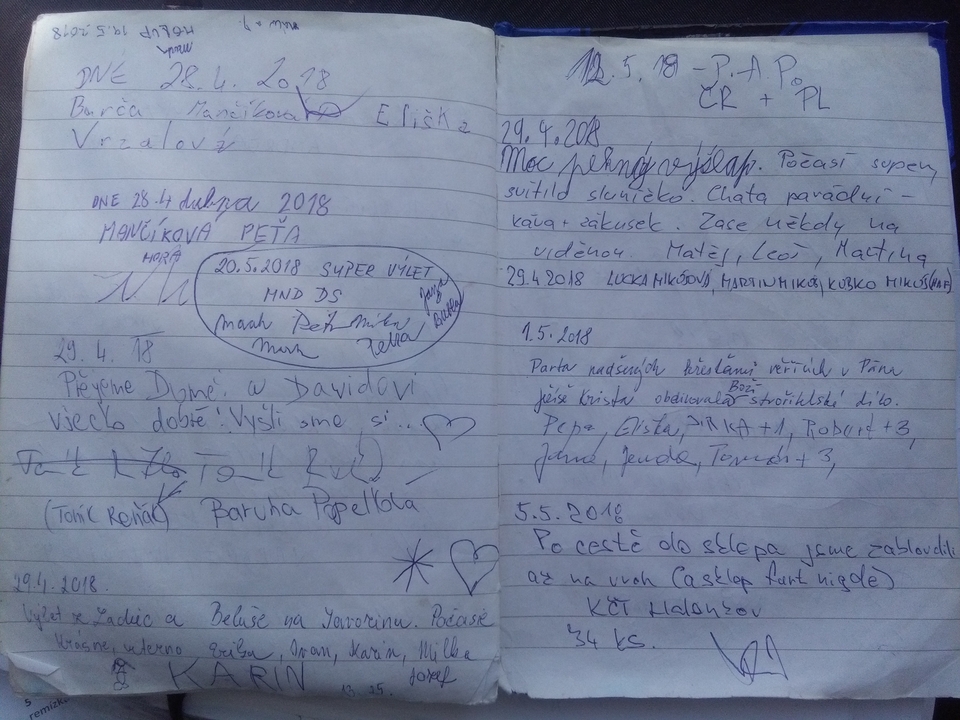 DNE 28.4. 2018
Barča Mančíková Eliška
Vrzalová
DNE 28.4 dubna 2018
MANČÍKOVÁ PEŤA
20.5.2018 SUPER VÝLET
MND DS
Petra
29. 4. 18
Přejeme a Davidovi
všecko dobré! Vyšli sme si..
(Toník Reňák) Baruna Popelková
29.4. 2018.
Výlet ze a Beluše na Javorinu. Počasie
krásne, Ivan, Karin, Milka
KARIN Jozef
12.5.18 - P.A.P.
ČR + PL
29.4.2018
Moc pěkný výšlap. Počasí super,
svítilo sluníčko. Chata parádní -
káva + zákusek. Zase někdy na
viděnou. Matěj, Leoš, Martina
29.4.2018 LUCKA MIKÓŠOVÁ, MARTIN MIKÓŠ, KUBKO MIKÓŠ
1.5.2018
Parta nadšených křesťanů věřících v Pána
Ježíše Krista obdivovala Boží stvořitelské dílo.
Pepa, Eliška, JIRKA +1, Robert +3,
Jenda, Tomáš +3,
5.5.2018
Po cestě do sklepa jsme zabloudili
až na vrch (a sklep furt nigde)
KČT Halenkov
34 ks.